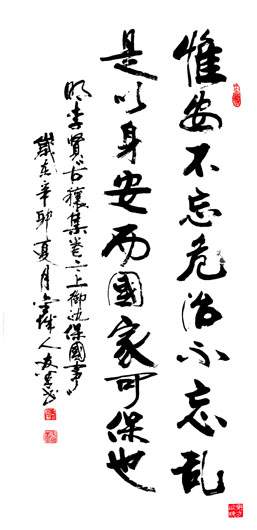 惟安不忘危治不忘乱
是以身安而國家可保也
明李賢《古穰集卷二上御边保國事》
歲在辛卯夏月